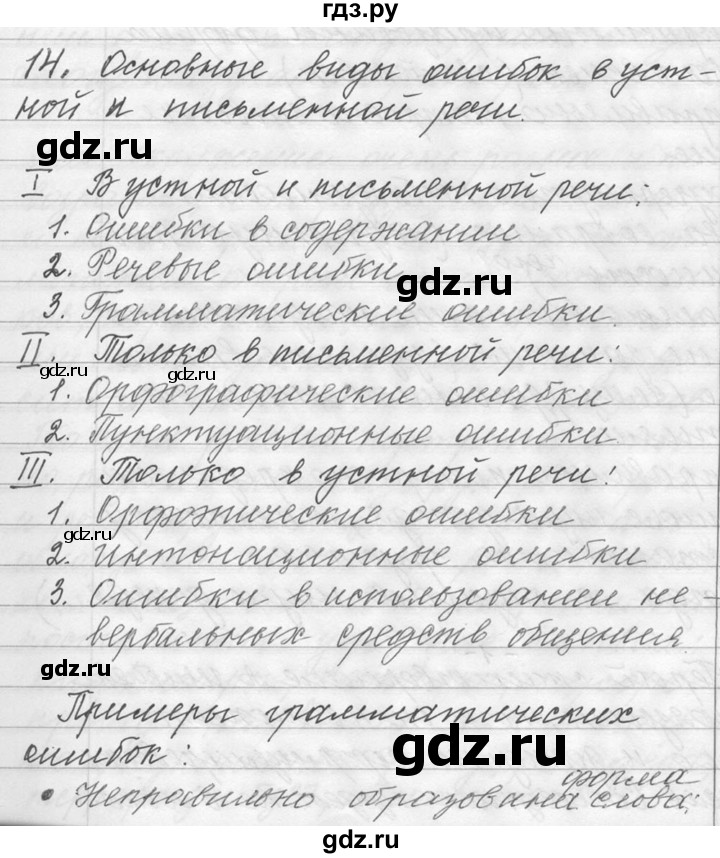 гдз.ру
14. Основные виды ошибок в уст-
ной и письменной речи.
gdz.ru
I В устной и письменной речи:
1. Ошибки в содержании
2. Речевые ошибки
gdz.ru
3. Грамматические ошибки.
II. Только в письменной речи:
gdz.ru gdz.ru
1. Орфографические ошибки
2. Пунктуационные ошибки.
III. Только в устной речи:
1. Орфоэпические ошибки
gdz.ru
2. Интонационные ошибки
3. Ошибки в использовании не-
вербальных средств общения.
gdz.ru
Примеры грамматических
ошибок:
gdz.ru
форма
• Неправильно образована слова;
gdz.ru